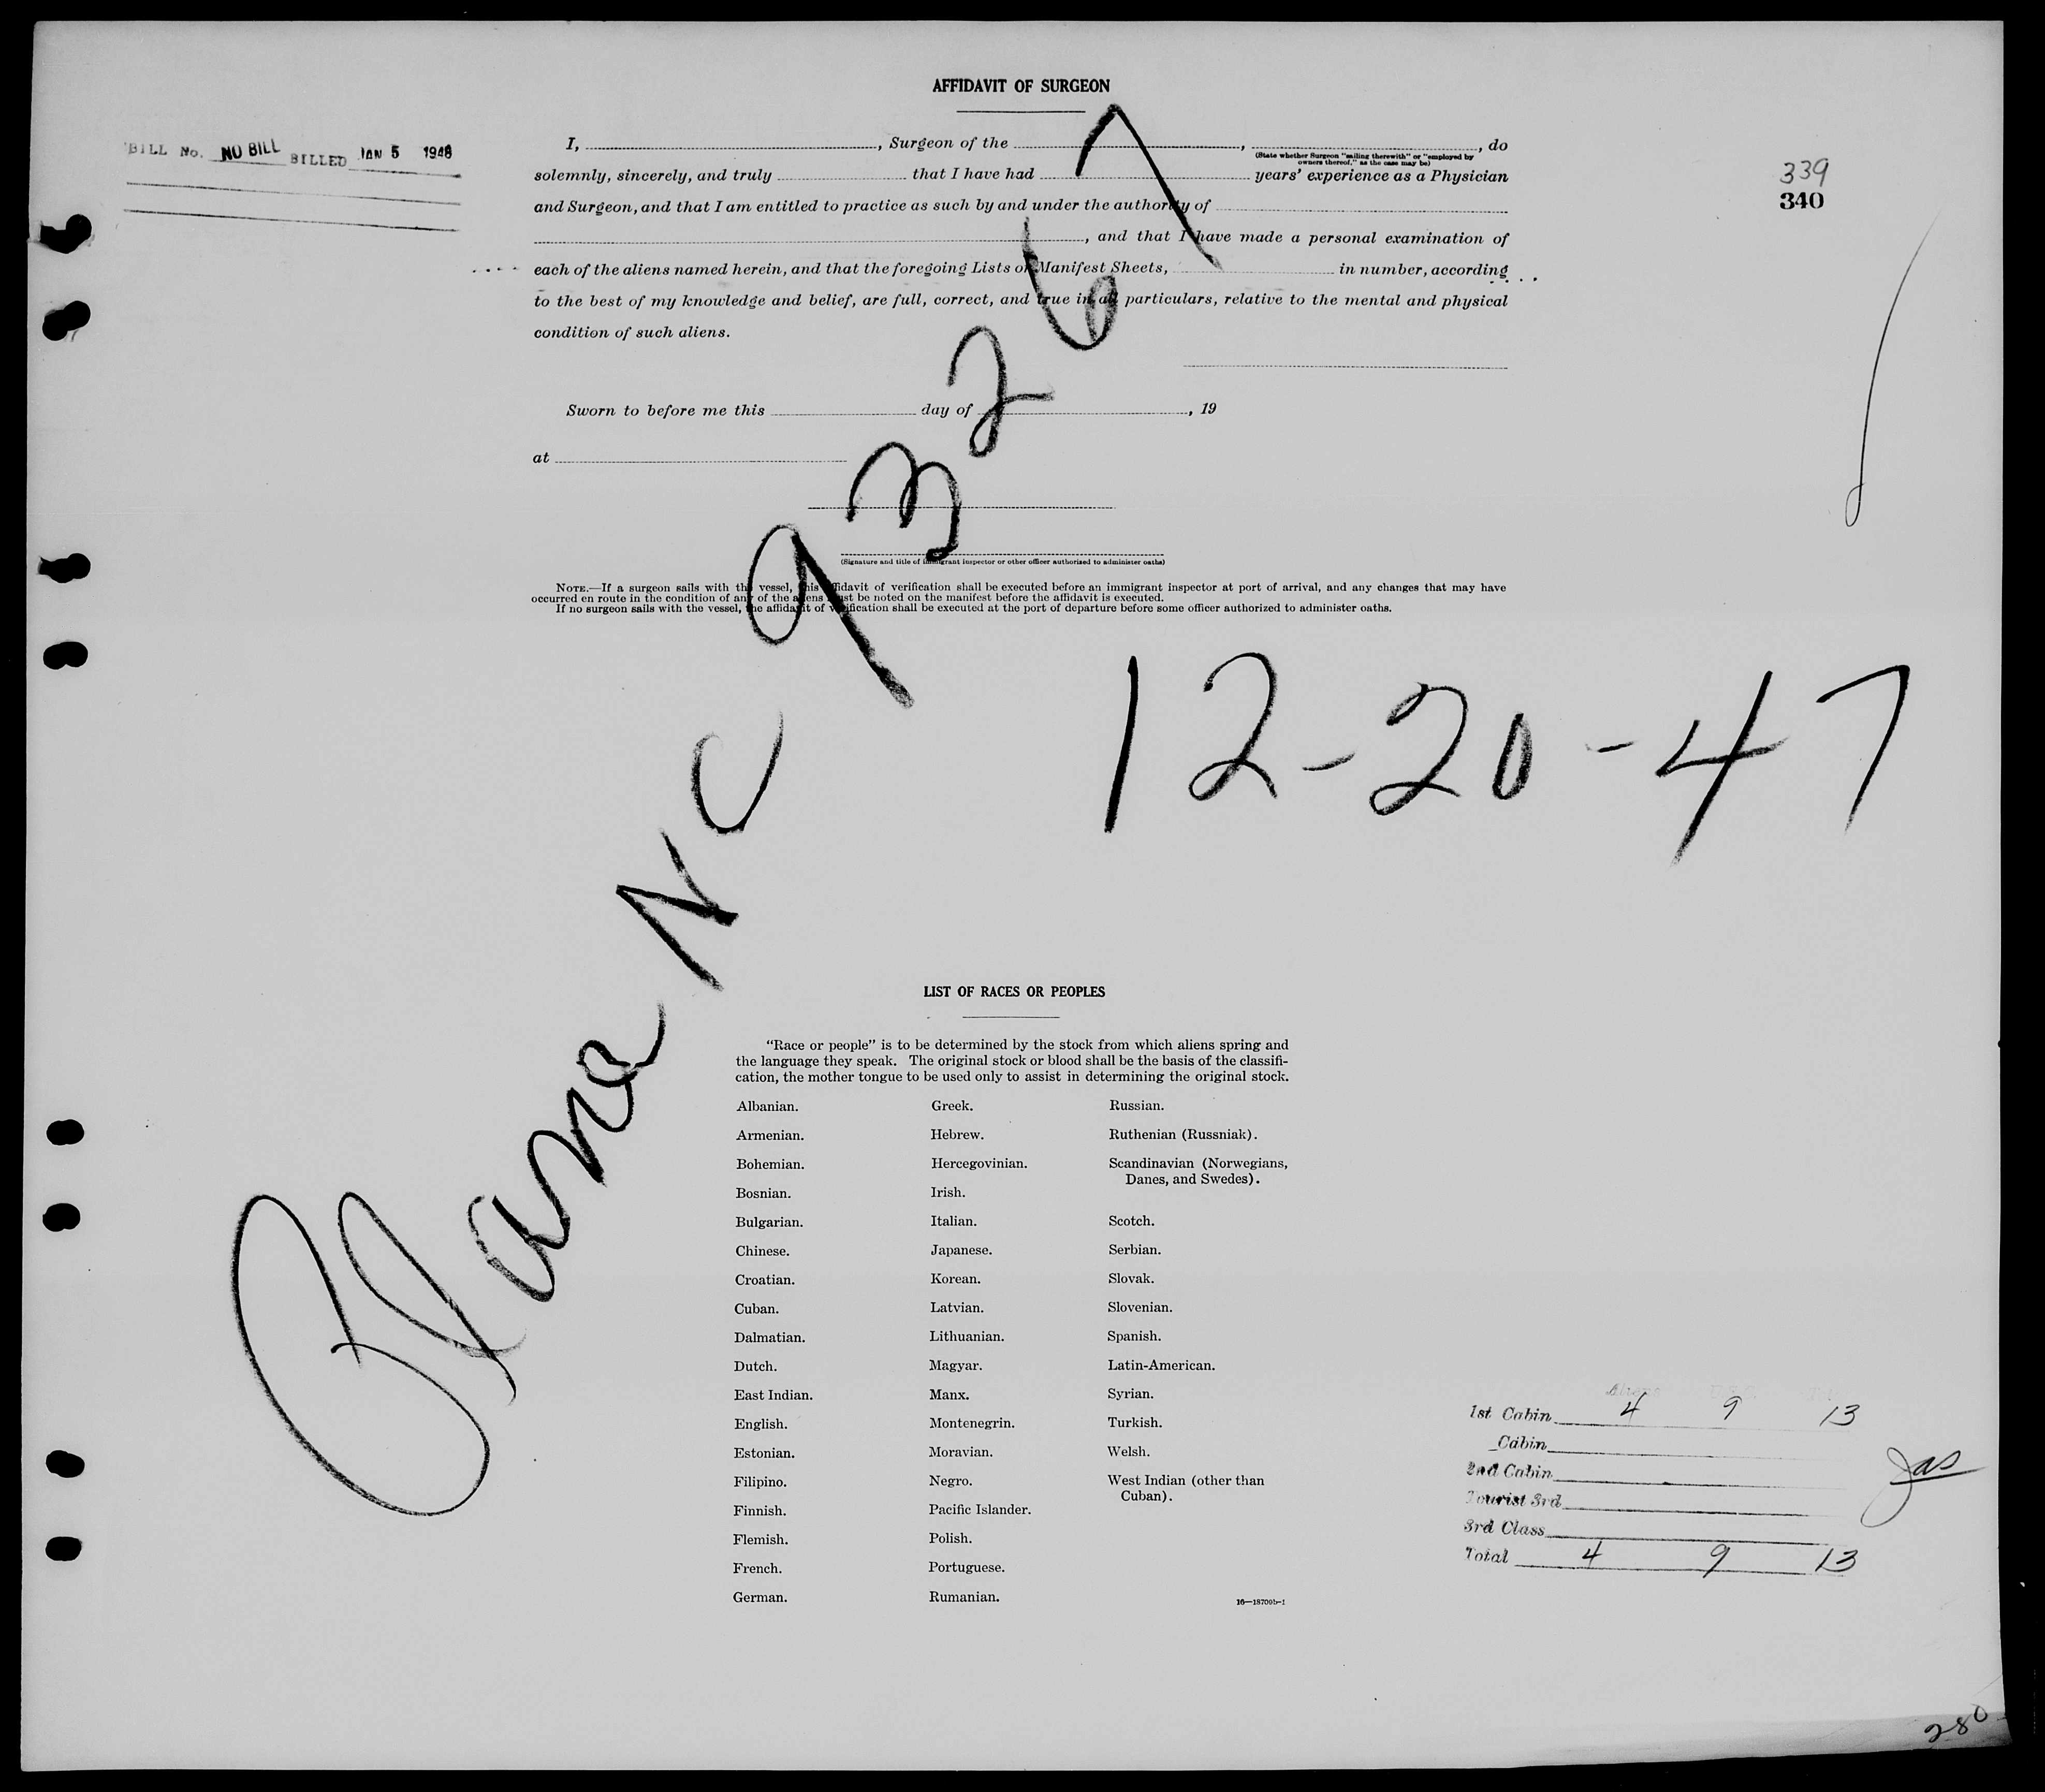 AFFIDAVIT OF SURGEON
BILL No. NO BILL BILLED JAN 5 1948
I, , Surgeon of the , , do
(State whether Surgeon "sailing therewith" or "employed by
owners thereof," as the case may be)
solemnly, sincerely, and truly that I have had years' experience as a Physician
and Surgeon, and that I am entitled to practice as such by and under the authority of
, and that I have made a personal examination of
each of the aliens named herein, and that the foregoing Lists or Manifest Sheets, in number, according
to the best of my knowledge and belief, are full, correct, and true in all particulars, relative to the mental and physical
condition of such aliens.
339
340
Sworn to before me this day of , 19
at
(Signature and title of immigrant inspector or other officer authorized to administer oaths)
NOTE.—If a surgeon sails with the vessel, this affidavit of verification shall be executed before an immigrant inspector at port of arrival, and any changes that may have
occurred en route in the condition of any of the aliens must be noted on the manifest before the affidavit is executed.
If no surgeon sails with the vessel, the affidavit of verification shall be executed at the port of departure before some officer authorized to administer oaths.
Plane NC 93267
12-20-47
LIST OF RACES OR PEOPLES
"Race or people" is to be determined by the stock from which aliens spring and
the language they speak. The original stock or blood shall be the basis of the classifi-
cation, the mother tongue to be used only to assist in determining the original stock.
Albanian.
Armenian.
Bohemian.
Bosnian.
Bulgarian.
Chinese.
Croatian.
Cuban.
Dalmatian.
Dutch.
East Indian.
English.
Estonian.
Filipino.
Finnish.
Flemish.
French.
German.
Greek.
Hebrew.
Hercegovinian.
Irish.
Italian.
Japanese.
Korean.
Latvian.
Lithuanian.
Magyar.
Manx.
Montenegrin.
Moravian.
Negro.
Pacific Islander.
Polish.
Portuguese.
Rumanian.
Russian.
Ruthenian (Russniak).
Scandinavian (Norwegians,
Danes, and Swedes).
Scotch.
Serbian.
Slovak.
Slovenian.
Spanish.
Latin-American.
Syrian.
Turkish.
Welsh.
West Indian (other than
Cuban).
16—18700b-1
1st Cabin 4 9 13
Cabin
2nd Cabin
Tourist 3rd
3rd Class
Total 4 9 13
Jas
280